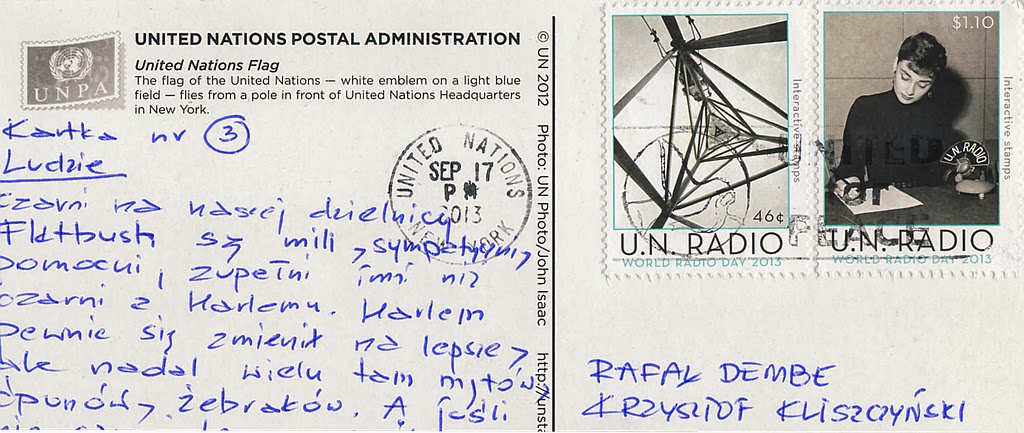 UNPA
UNITED NATIONS POSTAL ADMINISTRATION
United Nations Flag
The flag of the United Nations — white emblem on a light blue
field — flies from a pole in front of United Nations Headquarters
in New York.
Kartka nr 3
Ludzie
czarni na naszej dzielnicy
Flatbush są mili, sympatyczni,
pomocni, zupełni inni niż
czarni z Harlemu. Harlem
pewnie się zmienił na lepsze,
ale nadal wielu tam mętów,
ćpunów, żebraków. A jeśli
UNITED NATIONS
SEP 17
P
2013
NEW YORK
© UN 2012 Photo: UN Photo/John Isaac http://unsta
Interactive stamps
46¢
U.N. RADIO
WORLD RADIO DAY 2013
$1.10
Interactive stamps
U.N. RADIO
U.N. RADIO
WORLD RADIO DAY 2013
UNITED
PEACE
RAFAŁ DEMBE
KRZYSZTOF KLISZCZYŃSKI